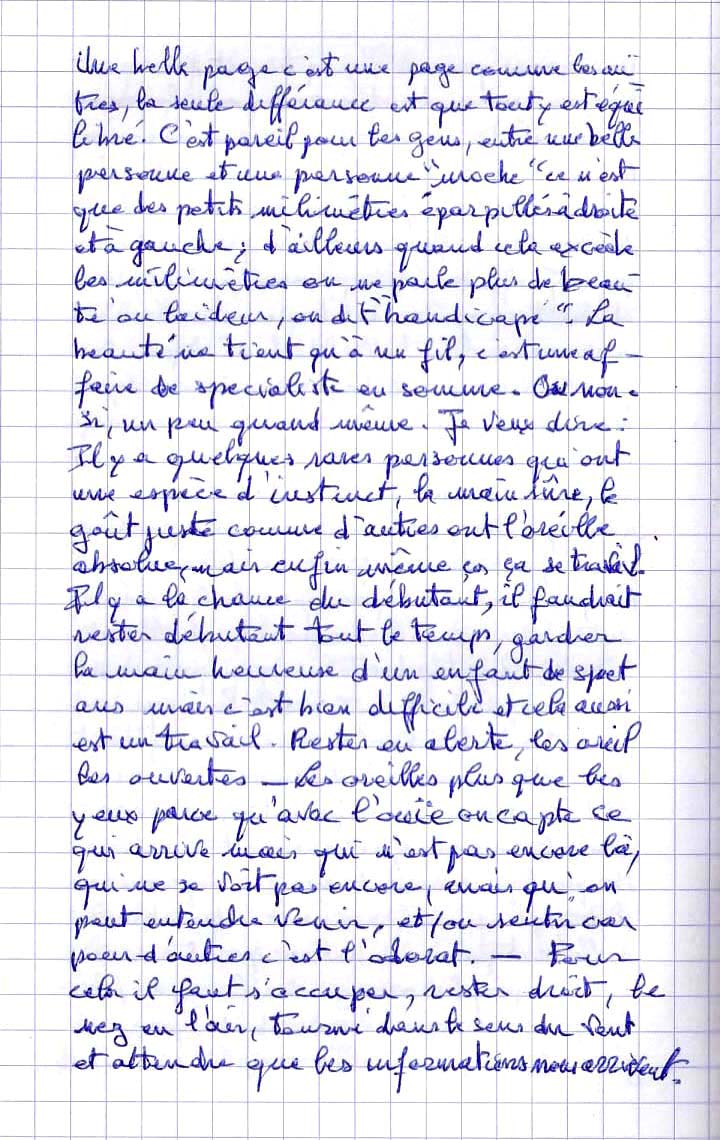 Une belle page c'est une page comme les au-
tres, la seule différance est que tout y est équi
libré. C'est pareil pour les gens, entre une belle
personne et une personne "moche" ce n'est
que des petits milimètres éparpillés à droite
et à gauche ; d'ailleurs quand cela excède
les milimètres on ne parle plus de beau-
té ou laideur, on dit "handicapé". La
beauté ne tient qu'à un fil, c'est une af-
faire de specialiste en somme. Ou non.
Si, un peu quand même. Je veux dire :
Il y a quelques rares personnes qui ont
une espèce d'instinct, la main sûre, le
goût juste comme d'autres ont l'oreille
absolue, mais enfin même ça se travail.
Il y a la chance du débutant, il faudrait
rester débutant tout le temps, garder
la main heureuse d'un enfant de spet
ans mais c'est bien difficile et cela aussi
est un travail. Rester en alerte, les oreil
les ouvertes — Les oreilles plus que les
yeux parce qu'avec l'ouïe on capte ce
qui arrive mais qui n'est pas encore là,
qui ne se voit pas encore, mais qu'on
peut entendre venir, et/ou sentir car
pour d'autres c'est l'odorat. — Pour
cela il faut s'accuper, rester droit, le
nez en l'air, tourné dans le sens du vent
et attendre que les informations nous arrivent.